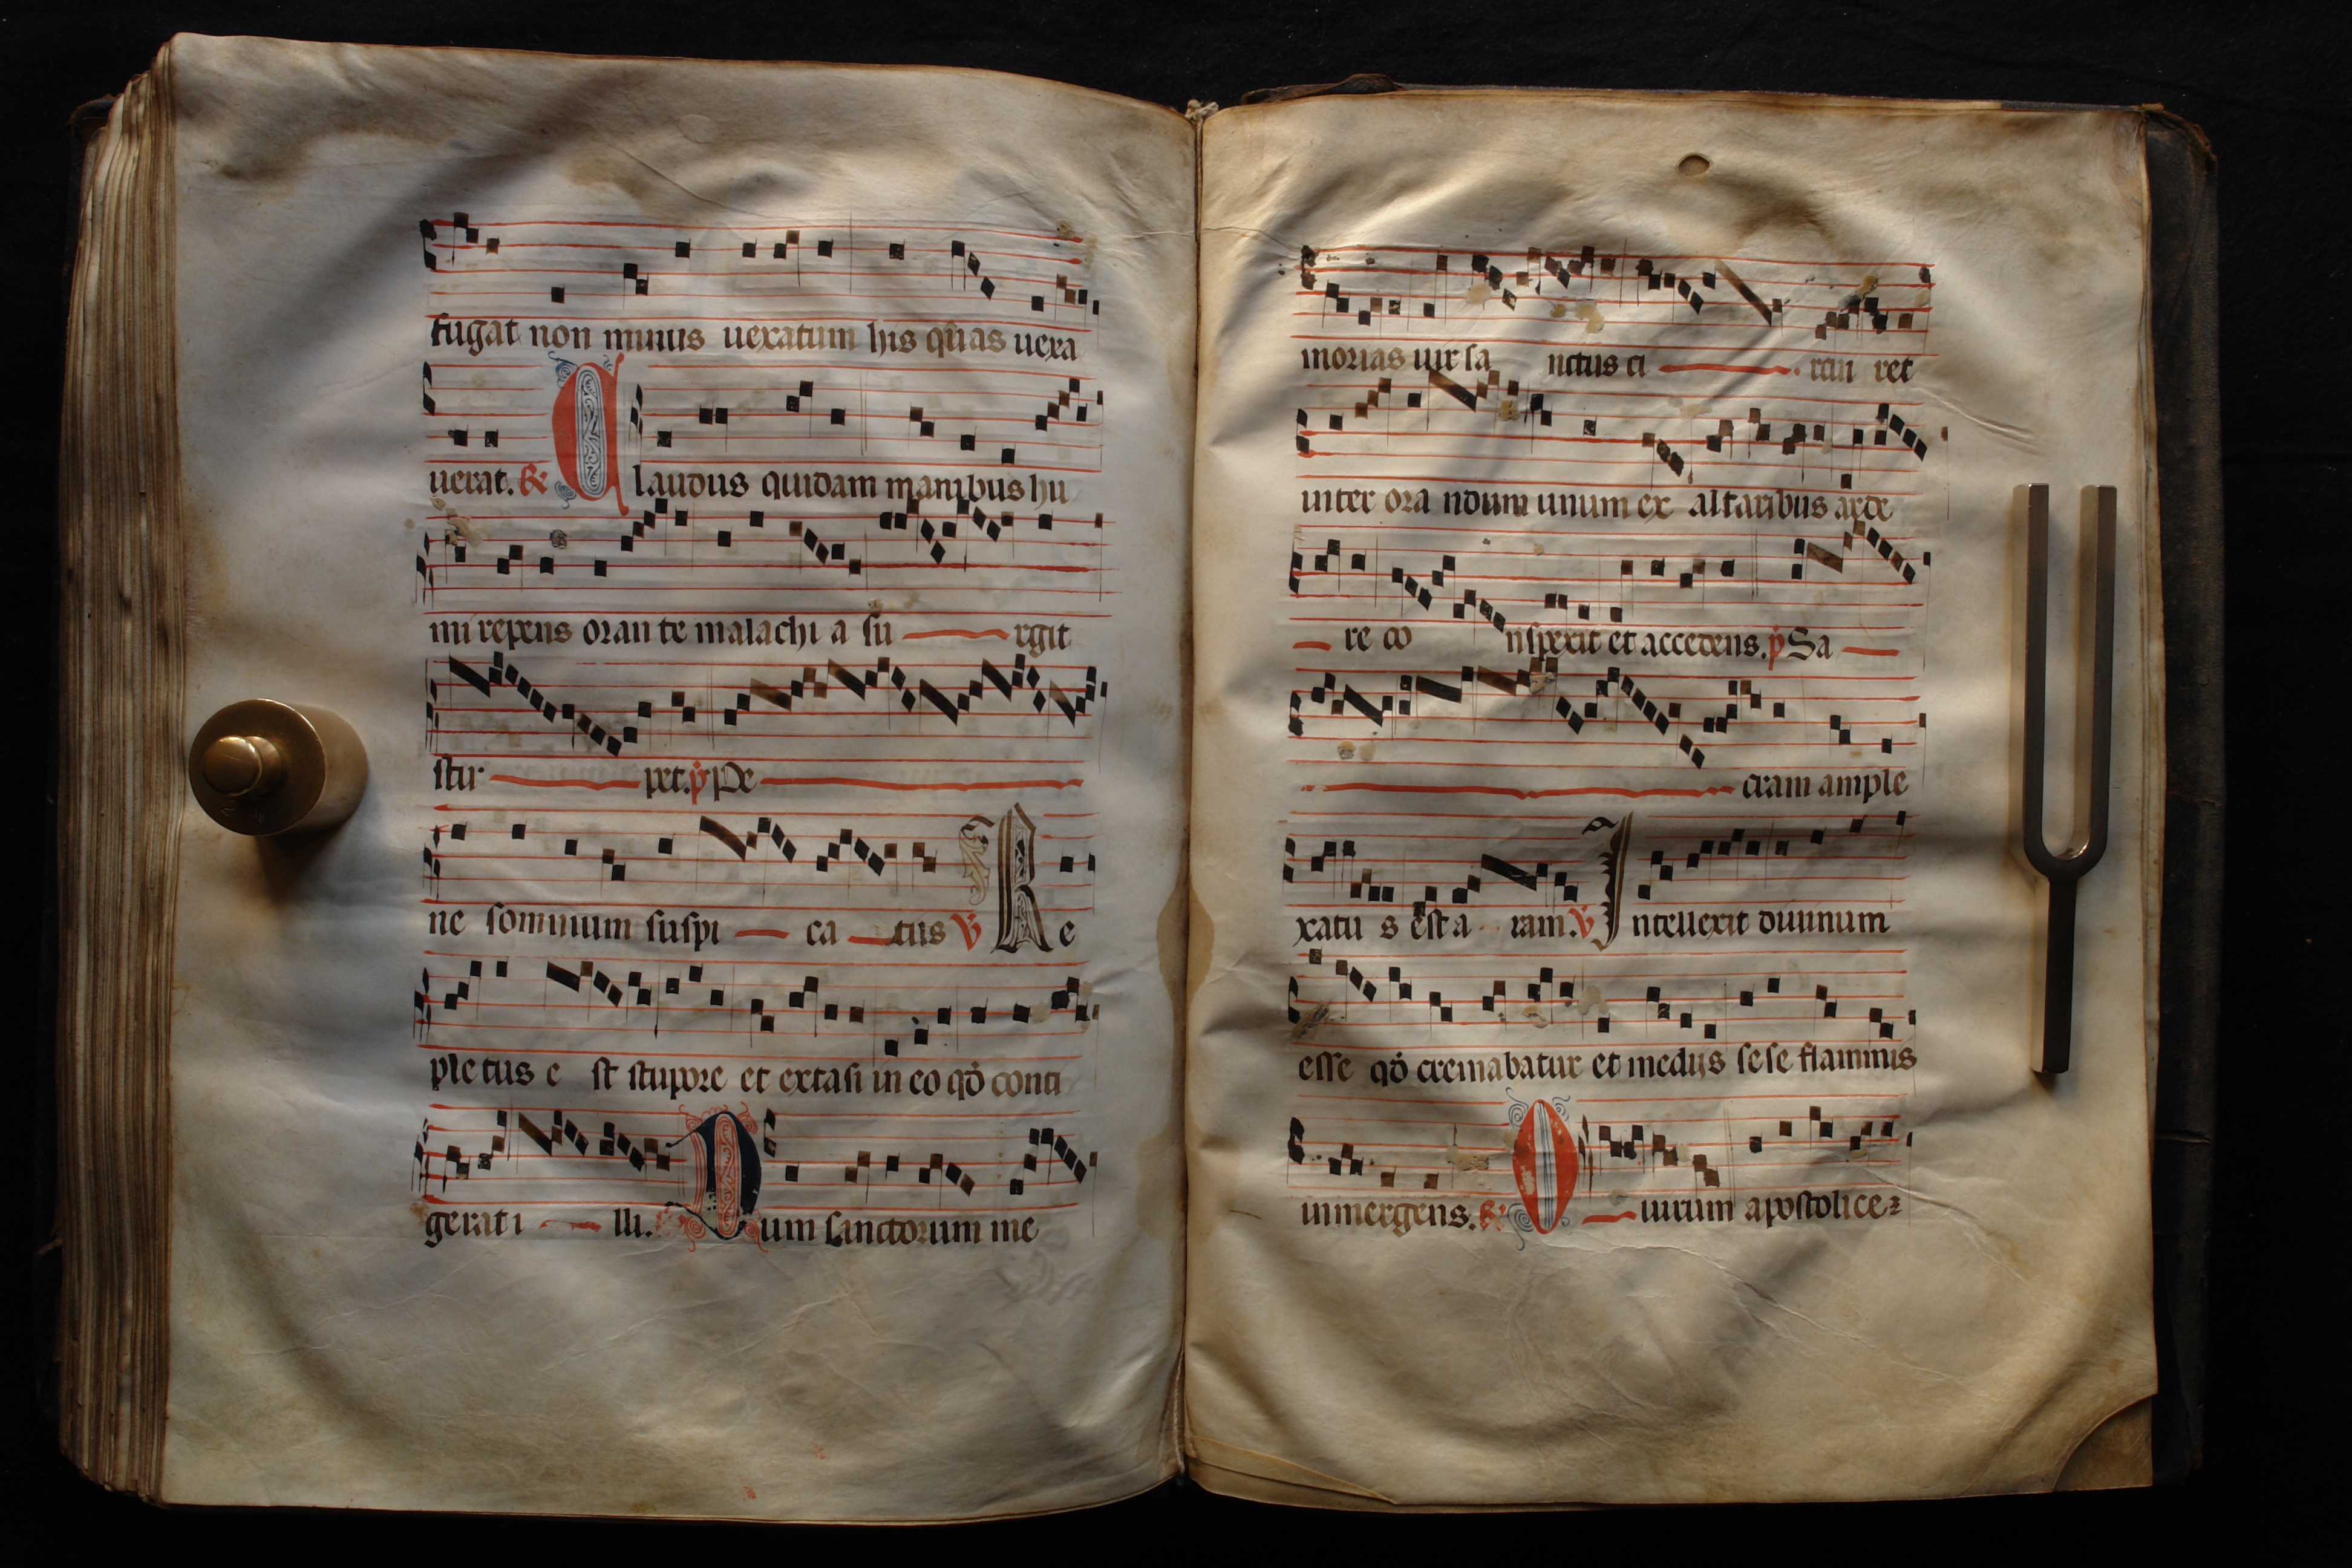 fugat non minus uexatum his quas uexa
uerat. R Claudus quidam manibus hu
mi repens oran te malachi a su rgit
stur pet. p Pe
ne somnium suspi ca tus V Re
ple tus e st stupore et extasi in eo qď conti
gerat i lli. Dum sanctorum me
morias uir sa nctus ci rcui ret
inter ora ndum unum ex altaribus arde
re co nspexit et accedens. p Sa
cram ample
xatu s est a ram. V Intellexit diuinum
esse qď cremabatur et medijs sese flammis
inmergens. R O uirum apostolice